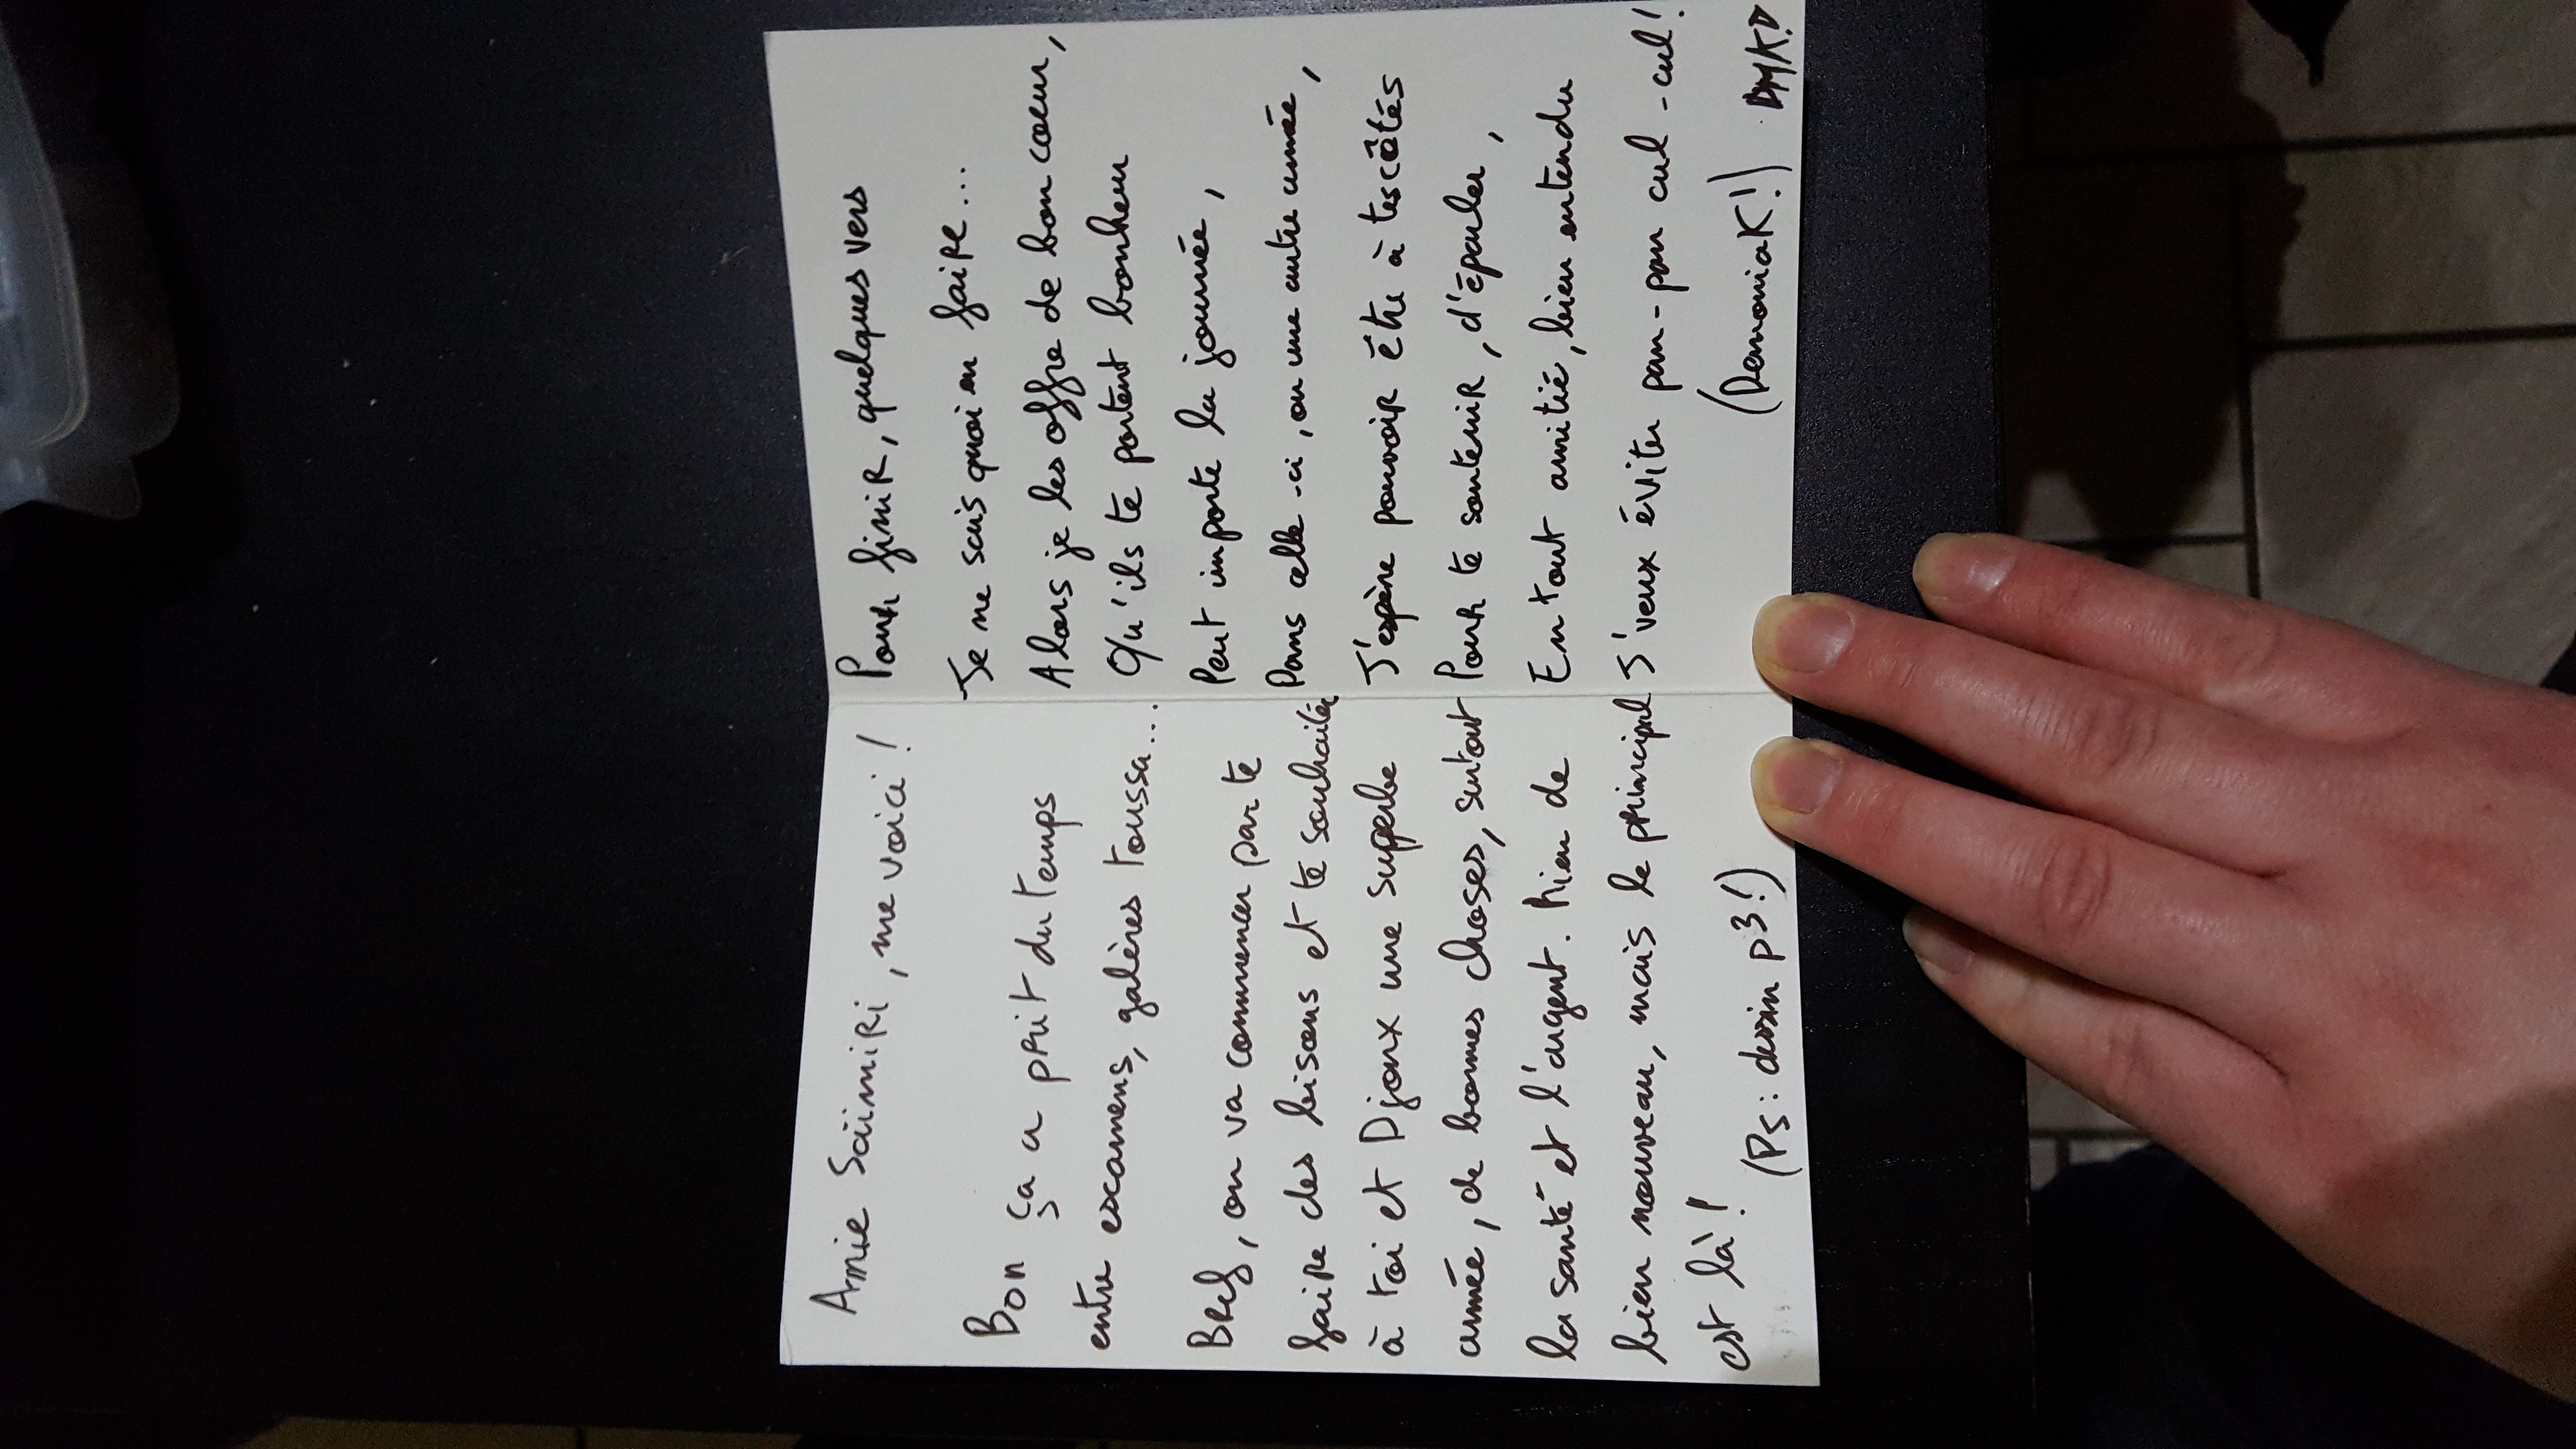 Amie Saïmiri, me voici !
Bon ça a prit du temps
entre examens, galères toussa...
Bref, on va commencer par te
faire des bisous et te souhaiter
à toi et Djoux une superbe
année, de bonnes choses, surtout
la santé et l'argent. Rien de
bien nouveau, mais le principal
est là !
(Ps : dessin p3!)
Pour finir, quelques vers
Je ne sais quoi en faire...
Alors je les offre de bon coeur,
Qu'ils te portent bonheur
Peut importe la journée,
Dans celle-ci, ou une autre année,
J'espère pouvoir être à tes côtés
Pour te soutenir, d'épauler,
En tout amitié, bien entendu
J'veux éviter pan-pan cul-cul!
(DemoniaK!) DMKD